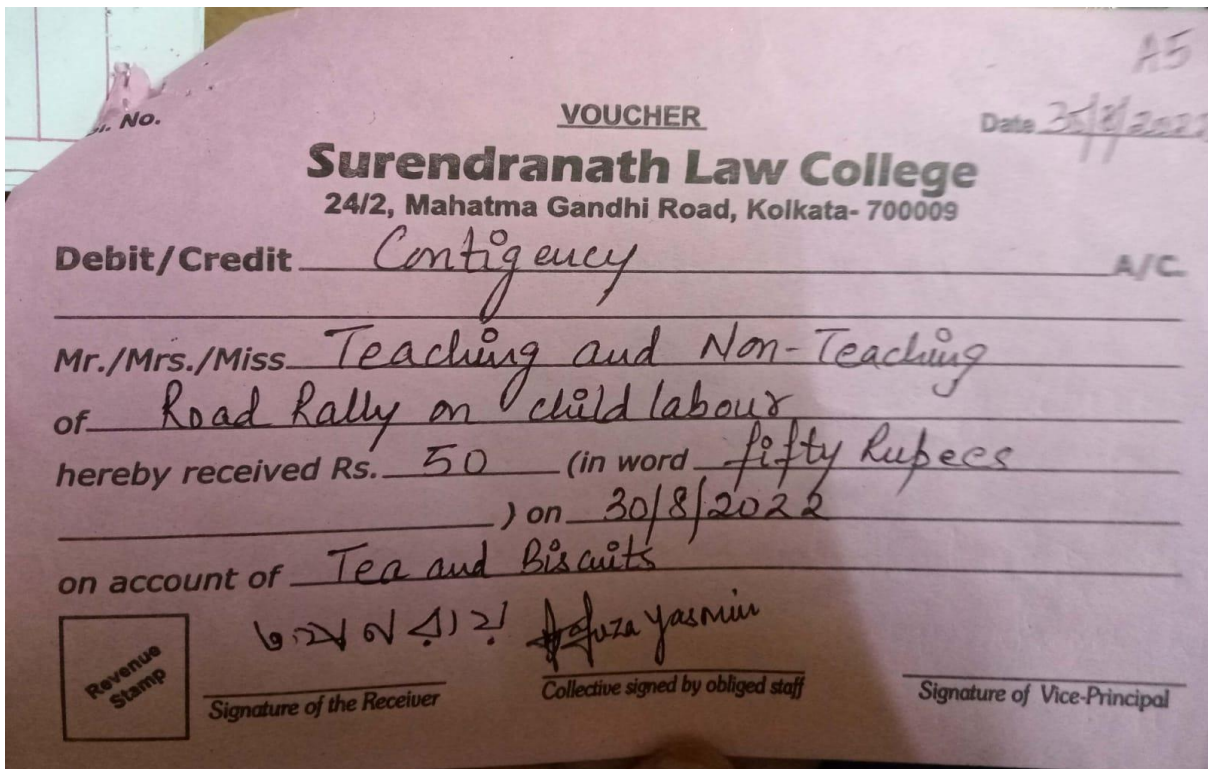 A5
No.
VOUCHER
Date 30/8/2022
Surendranath Law College
24/2, Mahatma Gandhi Road, Kolkata- 700009
Debit/Credit Contigency A/C.
Mr./Mrs./Miss. Teaching and Non-Teaching
of Road Rally on child labour
hereby received Rs. 50 (in word fifty Rupees
) on 30/8/2022
on account of Tea and Biscuits
Revenue Stamp
রায় Yasmin
Signature of the Receiver Collective signed by obliged staff Signature of Vice-Principal